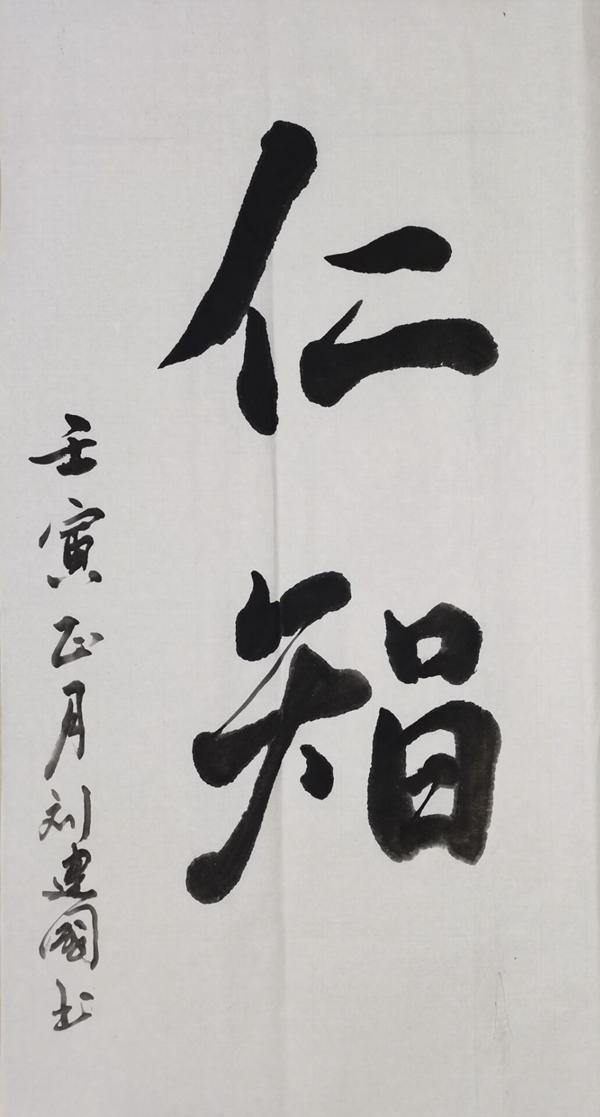 仁智
壬寅正月刘建國书